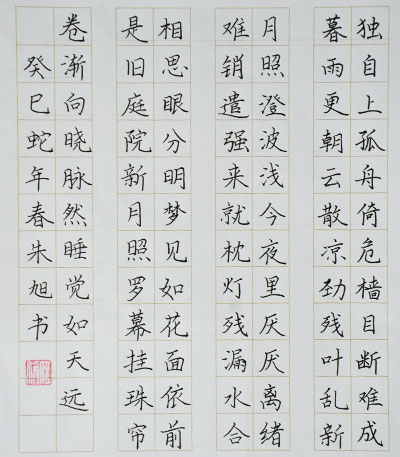 独自上孤舟倚危樯目断难成
暮雨更朝云散凉劲残叶乱新
月照澄波浅今夜里厌厌离绪
难销遣强来就枕灯残漏水合
相思眼分明梦见如花面依前
是旧庭院新月照罗幕挂珠帘
卷渐向晓脉然睡觉如天远
癸巳蛇年春朱旭书